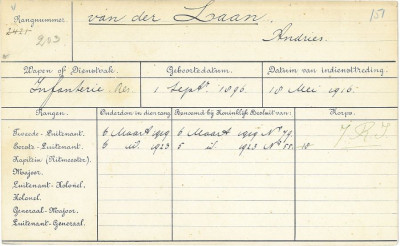 Rangnummer. van der Laan, 151
2425
223 Andries.
Wapen of Dienstvak. Geboortedatum. Datum van indiensttreding.
Infanterie Res. 1 Sept. 1896. 10 Mei 1916.
Rangen. Ouderdom in dien rang. Benoemd bij Koninklijk Besluit van: Korps.
Tweede-Luitenant 6 Maart 1919 6 Maart 1919 No 79. 7 R.I.
Eerste-Luitenant 6 id. 1923 5 id. 1923 No 18
Kapitein (Ritmeester)
Majoor
Luitenant-Kolonel
Kolonel
Generaal-Majoor
Luitenant-Generaal.